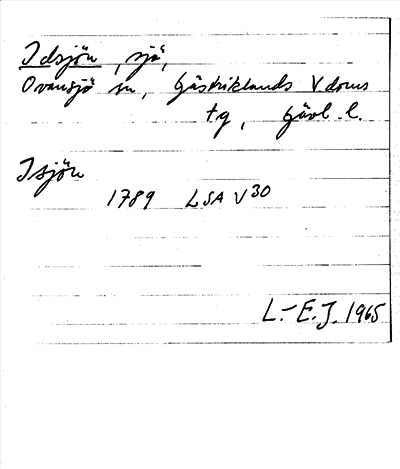 Idsjön, sjö,
Ovansjö sn, Gästriklands V doms
tg, Gävl. l.
Isjön
1789 LSA V30
L.-E.J. 1965